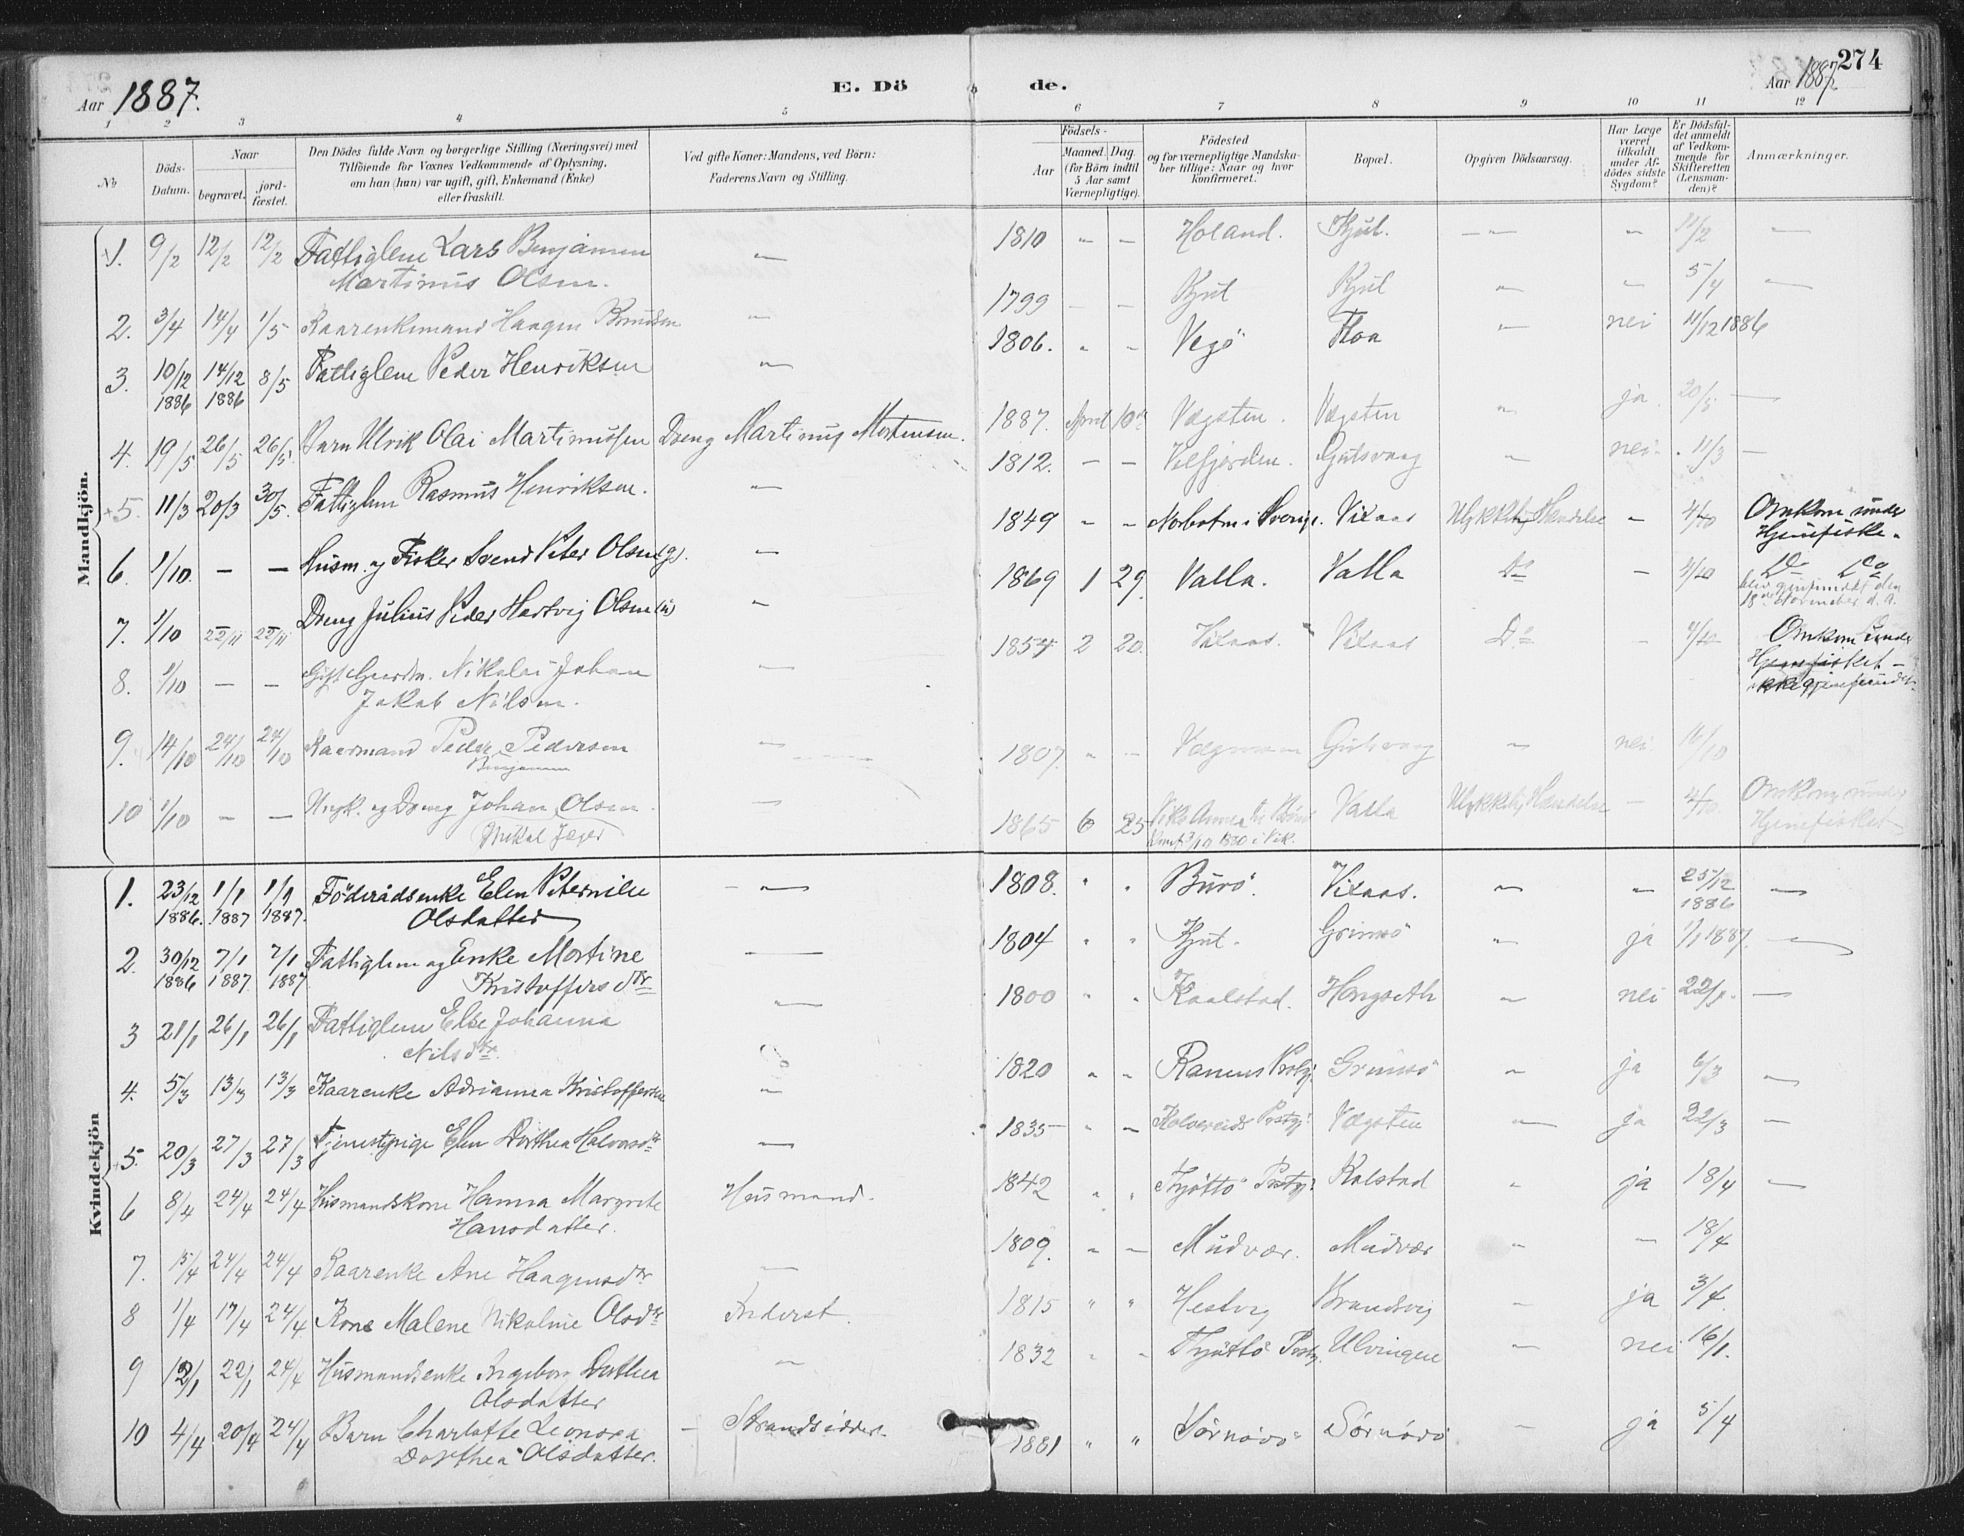 274
Aar 1887. E. Dö de. Aar 1887
1 2 3 4 5 6 7 8 9 10 11 12
No
Döds-Datum.
Naar
begravet.
jord-fæstet.
Den Dödes fulde Navn og borgerlige Stilling (Næringsvei) med
Tilföiende for Voxnes Vedkommende af Oplysning,
om han (hun) var ugift, gift, Enkemand (Enke)
eller fraskilt.
Ved gifte Koner: Mandens, ved Börn:
Faderens Navn og Stilling.
Födsels-
Aar
Maaned. Dag.
(for Börn indtil
5 Aar samt
Værnepligtige).
Födested
og for værnepligtige Mandska-
ber tillige: Naar og hvor
konfirmeret.
Bopæl.
Opgiven Dödsaarsag.
Har Læge
været
tilkaldt
under Af-
dödes sidste
Sygdom?
Er Dödsfal-
det anmeldt
af Vedkom-
mende for
Skifteretten
(Lensman-
den)?
Anmærkninger.
Mandkjön.
1. 9/2 12/2 12/2 Fattiglem Lars Benjamin Martinus Olsen. — 1810 — — Holand. Kjul. — — 11/2 —
2. 3/4 14/4 1/5 Kaarenkemand Haagen — 1799 — — Kjul Kjul — — 5/4 —
3. 10/12 1886 14/12 1886 8/5 Fattiglem Peder Henriksen — 1806. — — Vegö Floa — nei 11/12 1886
4. 19/5 26/5 26/5 Barn Ulrik Olai Martinussen Dreng Martinus Mortensen. 1887. April 10de Vægsten. Vægsten — ja 20/5 —
5. 11/3 20/3 30/5. Fattiglem Rasmus Henriksen. — 1812. — — Velfjorden. — nei. 11/3 —
6. 1/10. — — Husm. og Fisker Svend Peter Olsen (g). — 1849 — — i Sverige. Vixaas Ulykkelig Hændelse — 4/10 Omkom under Hjemfiske.
7. 1/10 22/11 22/11 Dreng Julius Peder Hartvig Olsen (u) — 1869 1 29. Valla. Valla Do — 4/10 Do Do blev gjenfundet den 18de November d. A.
8. 1/10 — — Gift Nikolai Johan Jakob Nilsen. — 1854 2 20. Vixaas. Vixaas Do — 4/10 Omkom under Hjemfisket — ikke gjenfundet
9. 14/10 24/10 24/10 Kaarmand Peder Benjamin Pedersen — 1807. — — — nei. 16/10
10 1/10 — — Ungk. og Dreng Johan Mikal Jæger Olsen. — 1865 6 25 1880 i Vik. Valla Ulykkelig Hændelse — 4/10. Omkom under Hjemfisket
Kvindekjön
1. 23/12 1886. 1/1 1887 1/1 1887. Föderådsenke Elen Peternille Olsdatter — 1808. " " Burö. Vixaas. — — 25/12 1886 —
2. 30/12 1886 7/1 1887 7/1 1887 Fattiglem og Enke Mortine Kristoffersdtr — 1804 " " Kjul. Grimsö — ja 1/1 1887. —
3 21/1 26/1 26/1 Fattiglem Else Johanna Nilsdtr. — 1800 " " Kaalstad. Hongseth — nei 22/1. —
4. 5/3 13/3 13/3 Kaarenke Adrianna Kristoffersen — 1820 " — Ranens Prstgj. Grimsö — ja 6/3 —
5. 20/3 27/3 27/3 Tjenestpige Elen Dorthea Halvorsdtr — 1835 " — Kolvereids Prstgj. Vægsten — ja 22/3 —
6 8/4 24/4 24/4 Husmandskone Hanna Margrete Hansdatter. Husmand. 1842 " " Tjöttö Prstgj. Kalstad " ja 18/4 —
7. 15/4 24/4 24/4 Kaarenke Ane Haagensdtr — 1809. " — Mudvær. Mudvær — — 18/4
8 1/4 17/4 24/4 Kone Malene Nikoline Olsdtr Inderst. 1815 " " Hestvig Brandsvig — ja 3/4.
9 12/1 22/1 24/4 Husmandsenke Ingeborg Dorthea Olsdatter — 1832 " — Tjöttö Prstgj. Ulvingen — nei 16/1.
10 4/4 20/4 24/4 Barn Charlotte Leonora Dorthea Olsdatter. — Strandsidder. 1881 " " Sörnövö Sörnövö — ja 5/4